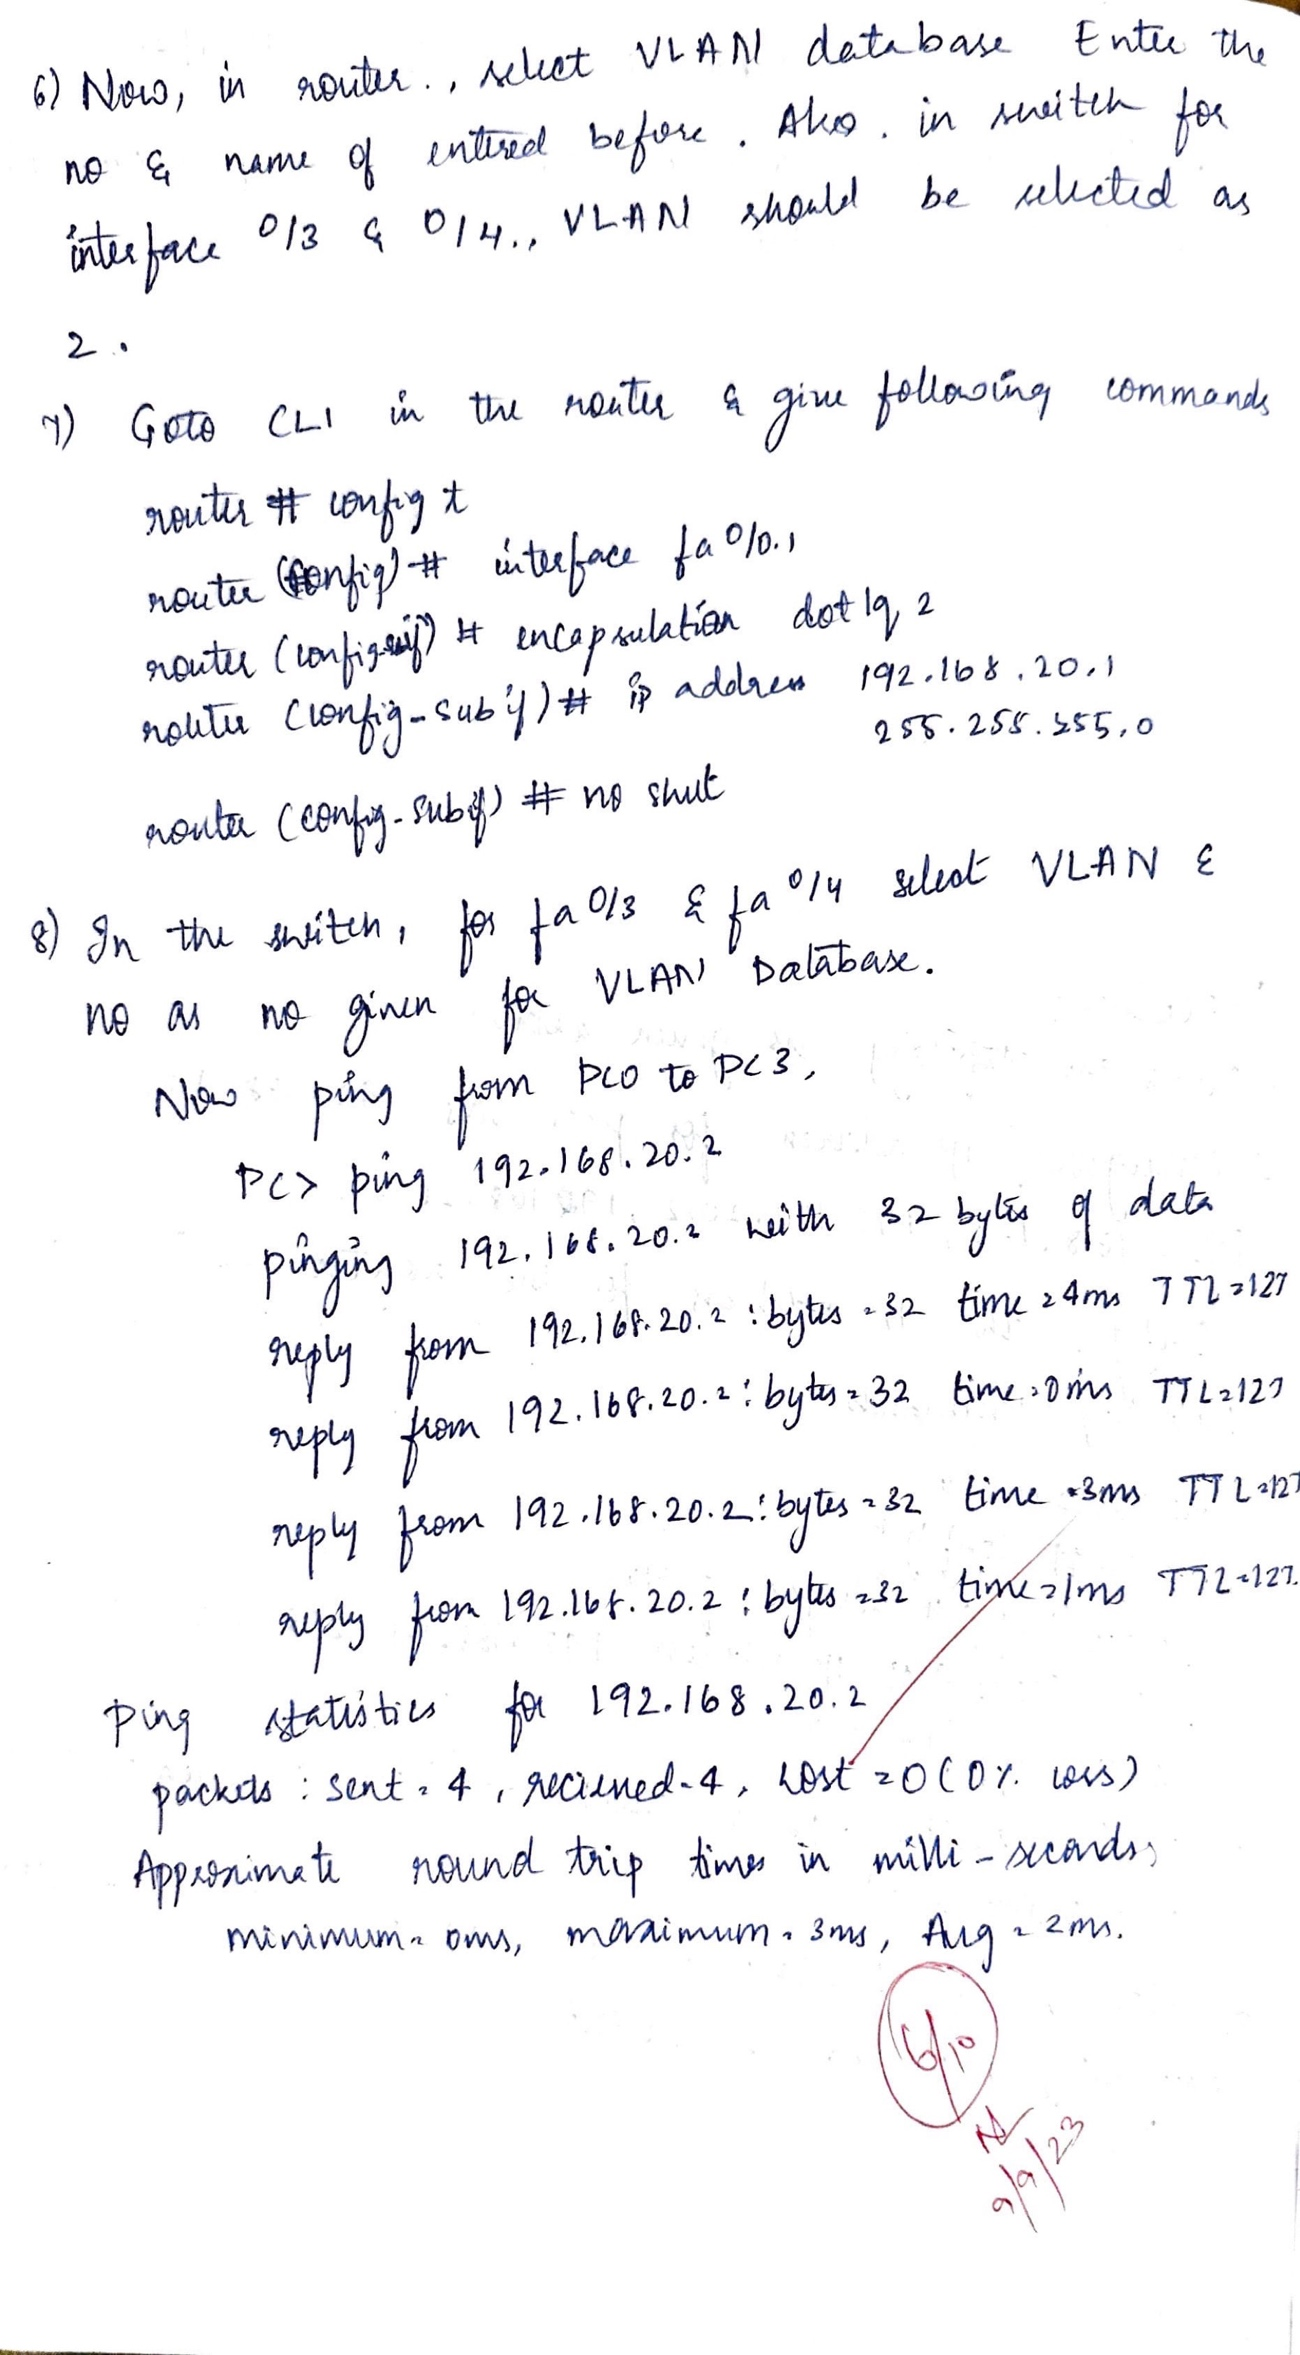 6) Now, in router., select VLAN database Enter the
no & name of entered before. Also. in switch for
interface 0/3 & 0/4., VLAN should be selected as
2.
7) Goto CLI in the router & give following commands
router # config t
router (config) # interface fa 0/0.1
router (config-subif) # encapsulation dot1q 2
router (config-subif) # ip address 192.168.20.1
255.255.255.0
router (config-subif) # no shut
8) In the switch, for fa 0/3 & fa 0/4 select VLAN &
no as no given for VLAN Database.
Now ping from PC0 to PC3,
PC> ping 192.168.20.2
pinging 192.168.20.2 with 32 bytes of data
reply from 192.168.20.2 : bytes = 32 time = 4ms TTL=127
reply from 192.168.20.2 : bytes = 32 time = 0ms TTL=127
reply from 192.168.20.2 : bytes = 32 time = 3ms TTL=127
reply from 192.168.20.2 : bytes = 32 time = 1ms TTL=127.
Ping statistics for 192.168.20.2
packets : sent = 4, recieved = 4, Lost = 0 (0% loss)
Approximate round trip times in milli-seconds;
minimum = 0ms, maximum = 3ms, Avg = 2ms.
6/10
9/9/23